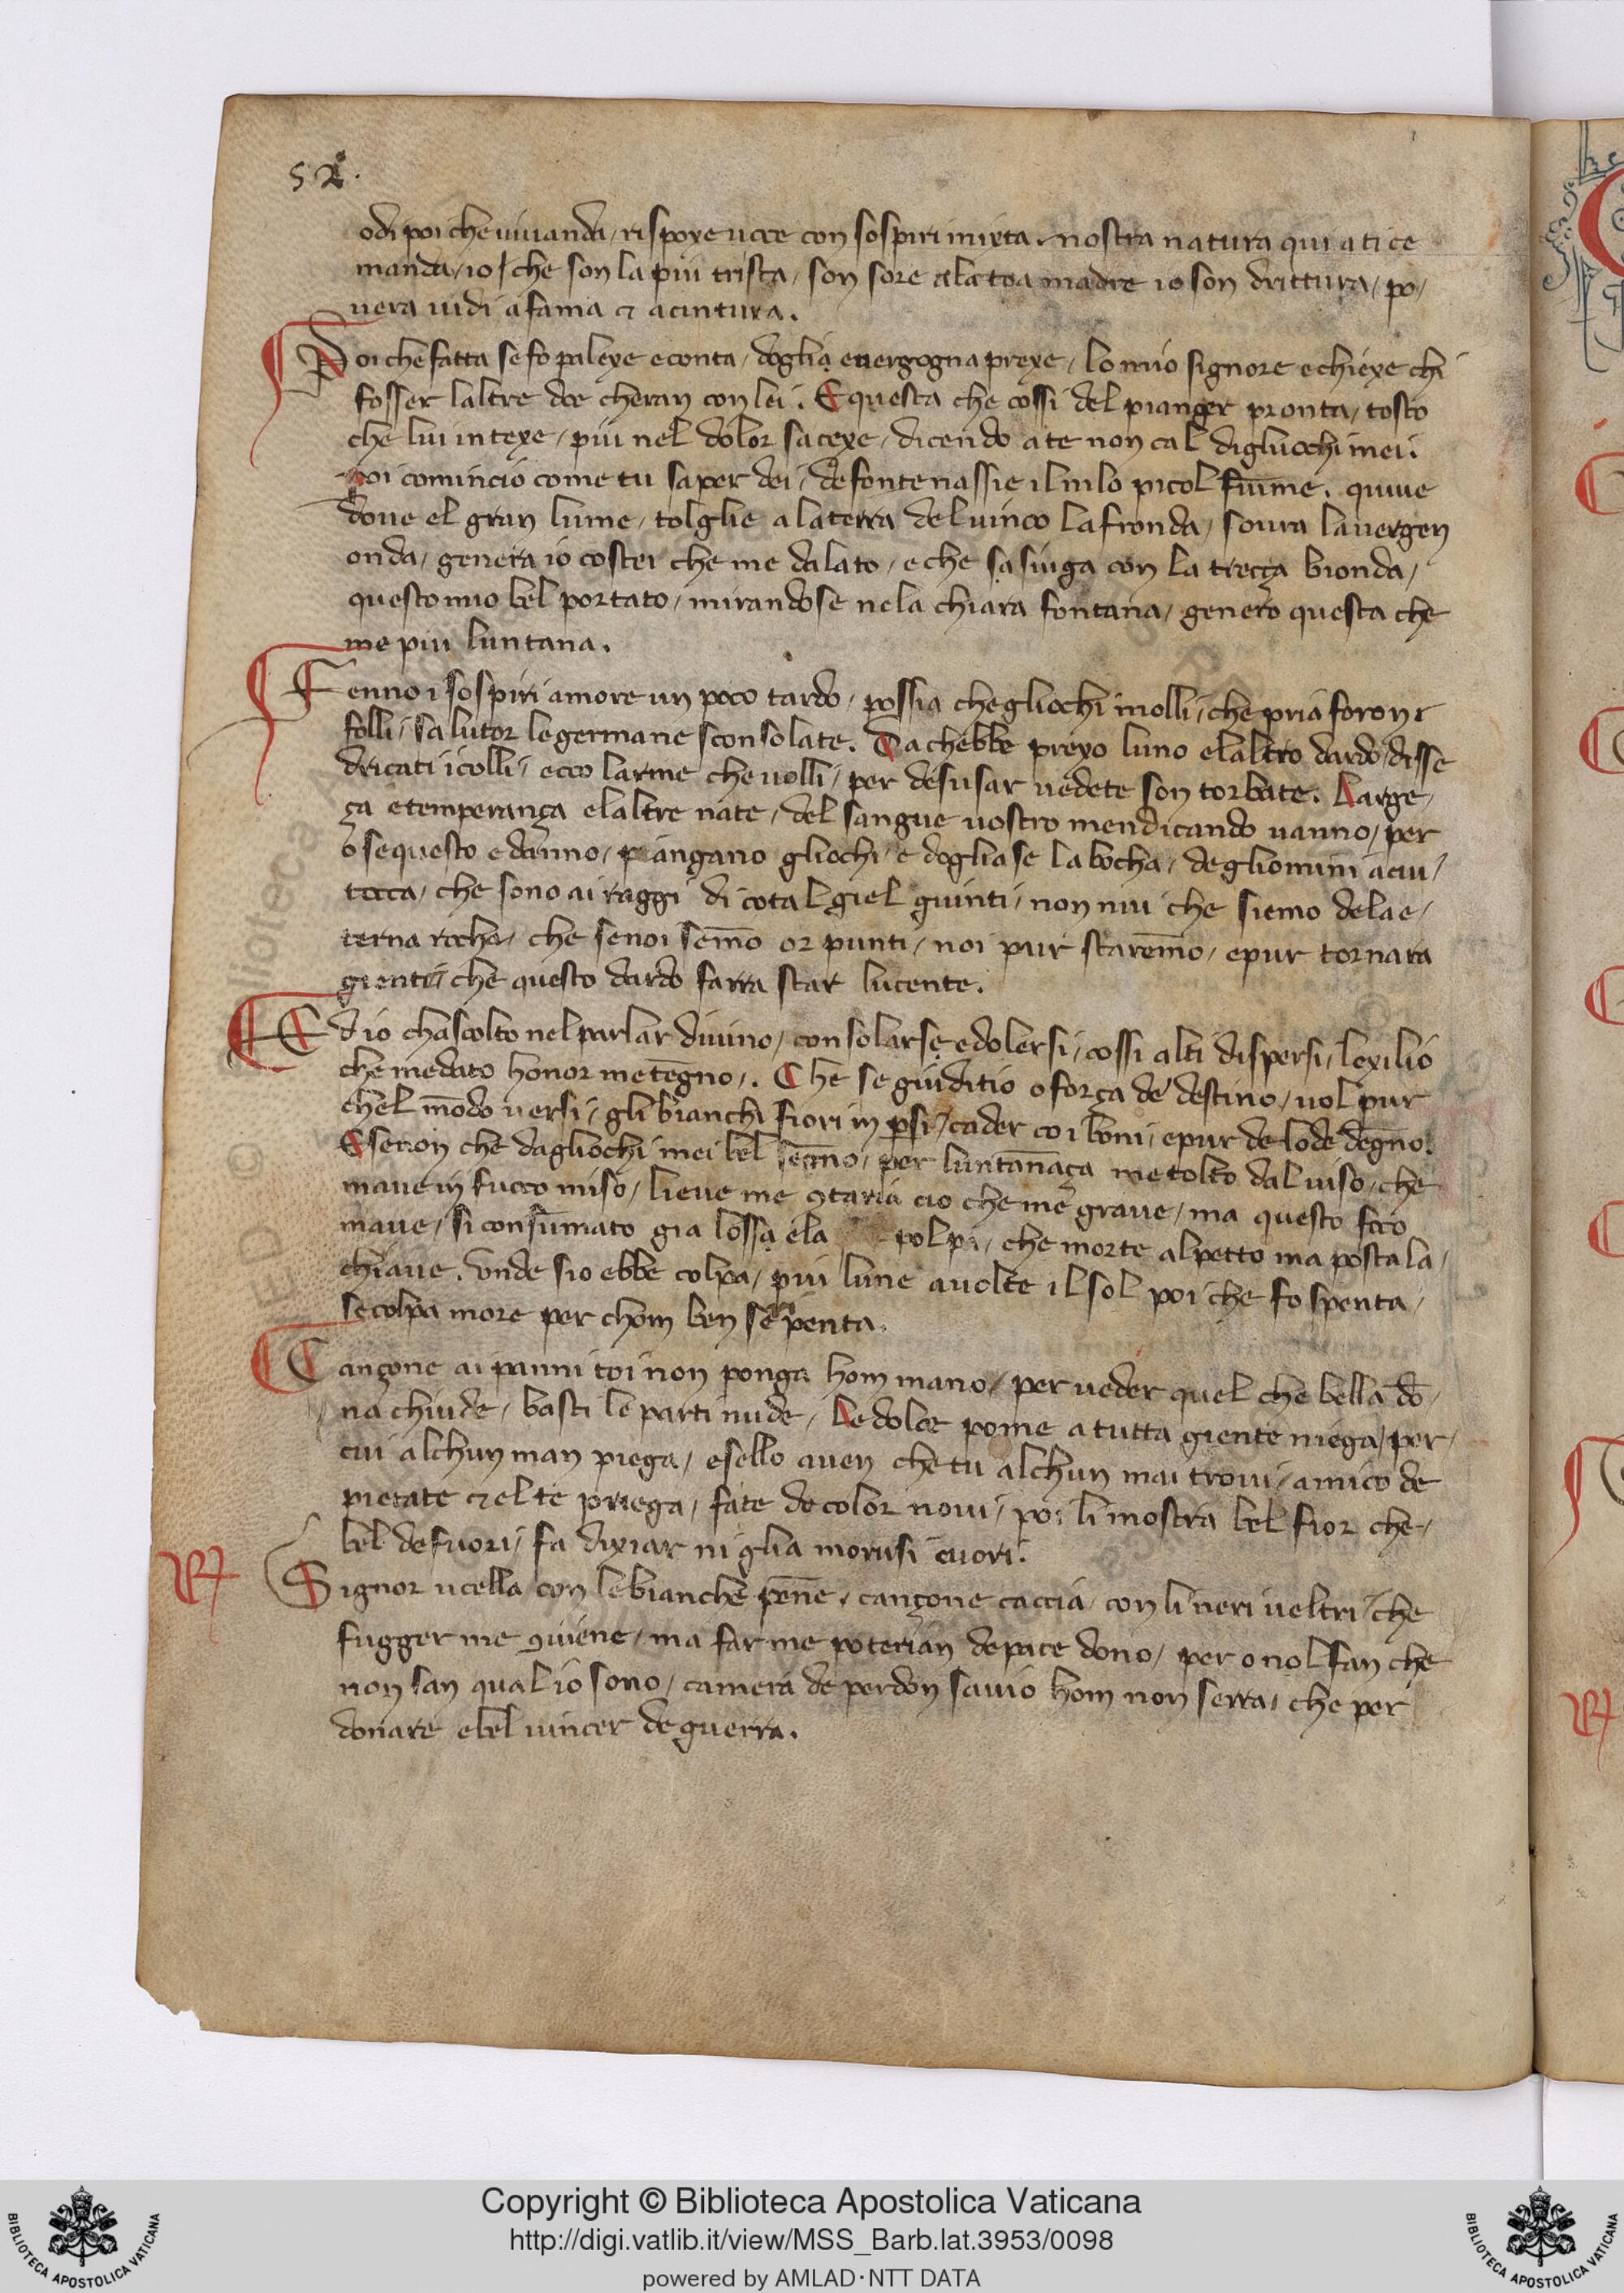 52.
odi poi che uiuanda / rispoxe uoce con sospiri mixta / nostra natura qui a ti ce
manda / io / che son la piu trista / son sore a la toa madre io son drittura / po /
uera uidi a fama ⁊ a cintura.
Poi che fatta se fo palexe e conta / doglia e uergogna prexe / lo mio signore e chiexe chi
fosser laltre doe cheran con lei. E questa che cossi del pianger pronta / tosto
che lui intexe / piu nel dolor sacexe / dicendo a te non cal digliuochi mei.
poi comincio come tu saper dei / de fonte nassie il nilo picol fiūme. quiue
doue el gran lume / tolglie a la terra del uinco la fronda / soura la uergen
onda / genera io costei che me dalato / e che sasiuga con la trecça bionda /
questo mio bel portato / mirandose ne la chiara fontana / genero questa che
me piu luntana.
Fenno i sospiri amore un poco tardo / possia che gliochi molli / che pria foron
folli / salutor le germane sconsolate. Da chebbe prexo luno e laltro dardo / disse
dricati i colli / ecco larme che uolli / per desusar uedete son torbate. Large /
ça e temperança e laltre nate / del sangue uostro mendicando uanno / per
o se questo e danno / piangano gliochi / e dogliase la bocha / degliomini a cui /
tocca / che sono ai raggi di cotal giel guinti / non nui che siemo de la e /
terna rocha / che se noi semō or punti / noi pur staremō / e pur tornara
giente / che questo dardo farra star lucente.
Ed io chascolto nel parlar diuino / consolarse e dolersi / cossi alti dispersi / lexilio
che me dato honor me tēgno. Che se giuditio o força de destino / uol pur
chel mōdo uersi / gli bianchi fiori in persi / cader co i boni / e pur de lode dēgno.
E se non che dagliochi mei bel segno / per luntanāça me tolto dal uiso / che
maue in fuoco miso / lieue me ꝯtaria cio che me graue / ma questo foco
maue / si consūmato gia lossa e la polpa / che morte al petto ma posta la /
chiaue. Unde sio ebbe colpa / piu lune a uolte il sol poi che fo spenta /
se colpa more per chom ben se penta.
Cançone ai panni toi non ponga hom mano / per ueder quel che bella dō /
na chiude / basti le parti nude / Le dolce pome a tutta giente niega / per /
cui alchun man piega / e sello auen che tu alchun mai troui / amico de
pietate ⁊ el te priega / fate de color noui / poi li mostra bel fior che /
bel de fuori / fa dixiar ni glia morusi cuori.
Signor ucella con le bianche pēne / cançone caccia / con li neri ueltri / che
fugger me ꝯuiene / ma far me poterian de pace dono / per o nol fan che
non san qual io sono / camera de perdon sauio hom non serra / che per
donare e bel uincer de guerra.
Copyright © Biblioteca Apostolica Vaticana
http://digi.vatlib.it/view/MSS_Barb.lat.3953/0098
powered by AMLAD·NTT DATA
BIBLIOTECA APOSTOLICA VATICANA
BIBLIOTECA APOSTOLICA VATICANA